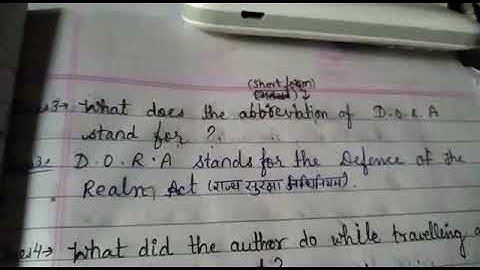 (Short form)
Ques3→ What does the abbreviation of D.O.R.A
stand for?
D.O.R.A stands for the Defence of the
Realm Act (राज्य सुरक्षा अधिनियम).
Ques4→ What did the author do while travelling